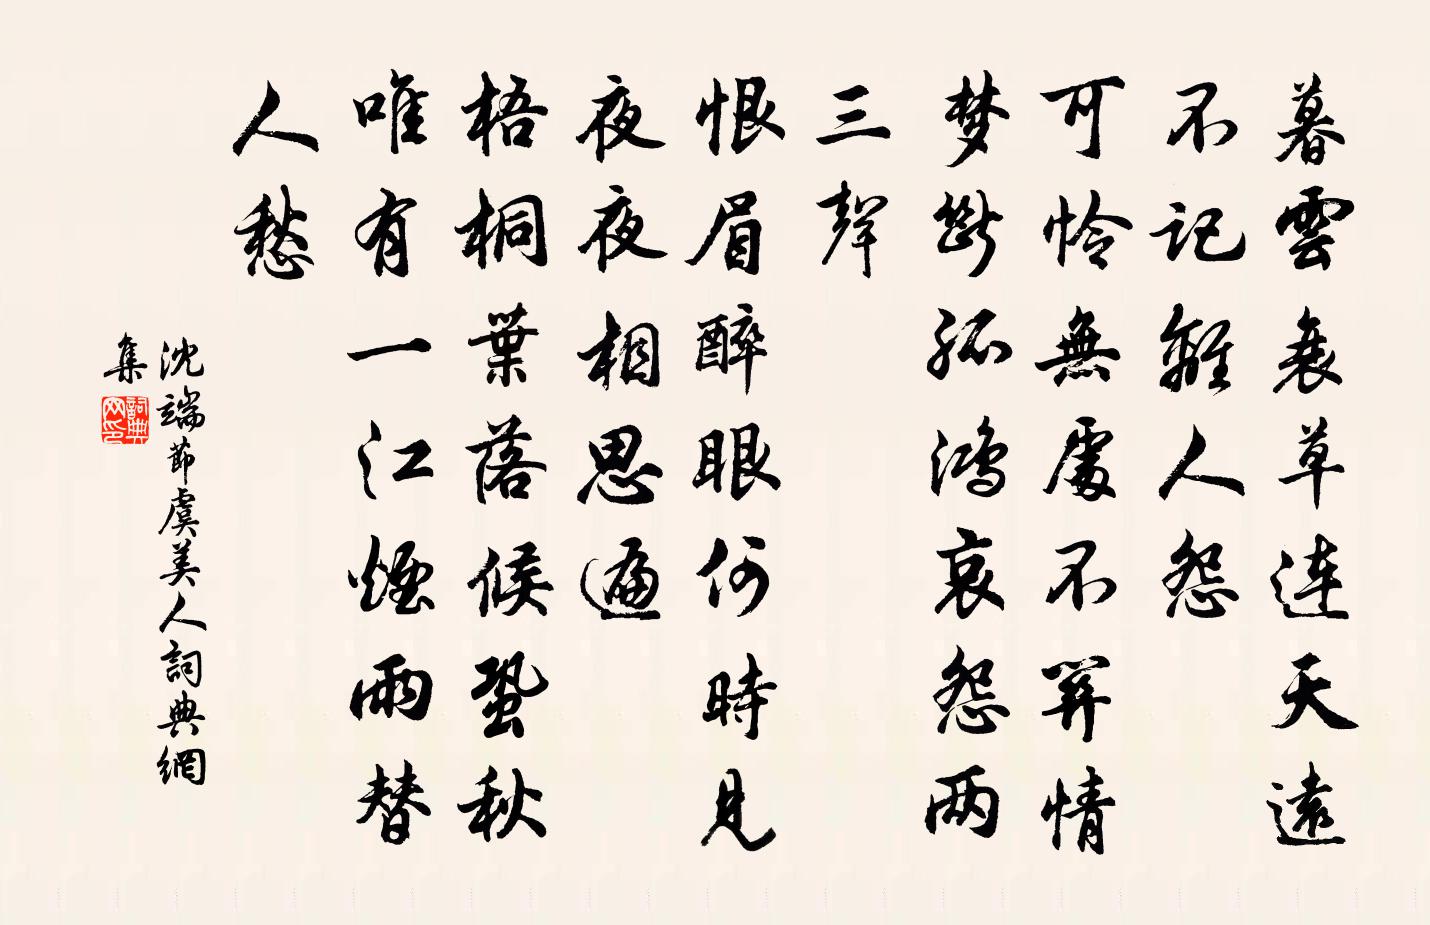 暮雲衰草連天遠
不記離人怨
可憐無處不關情
梦斷孤鴻哀怨两
三聲
恨眉醉眼何時見
夜夜相思遍
梧桐葉落候蛩秋
唯有一江煙雨替
人愁
沈端節虞美人詞典網
集
詞典网印